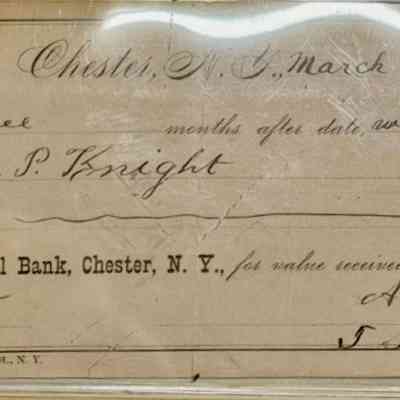 Chester, N. Y., March
ee months after date, w
P. Knight
l Bank, Chester, N. Y., for value received
A
J
N. Y.